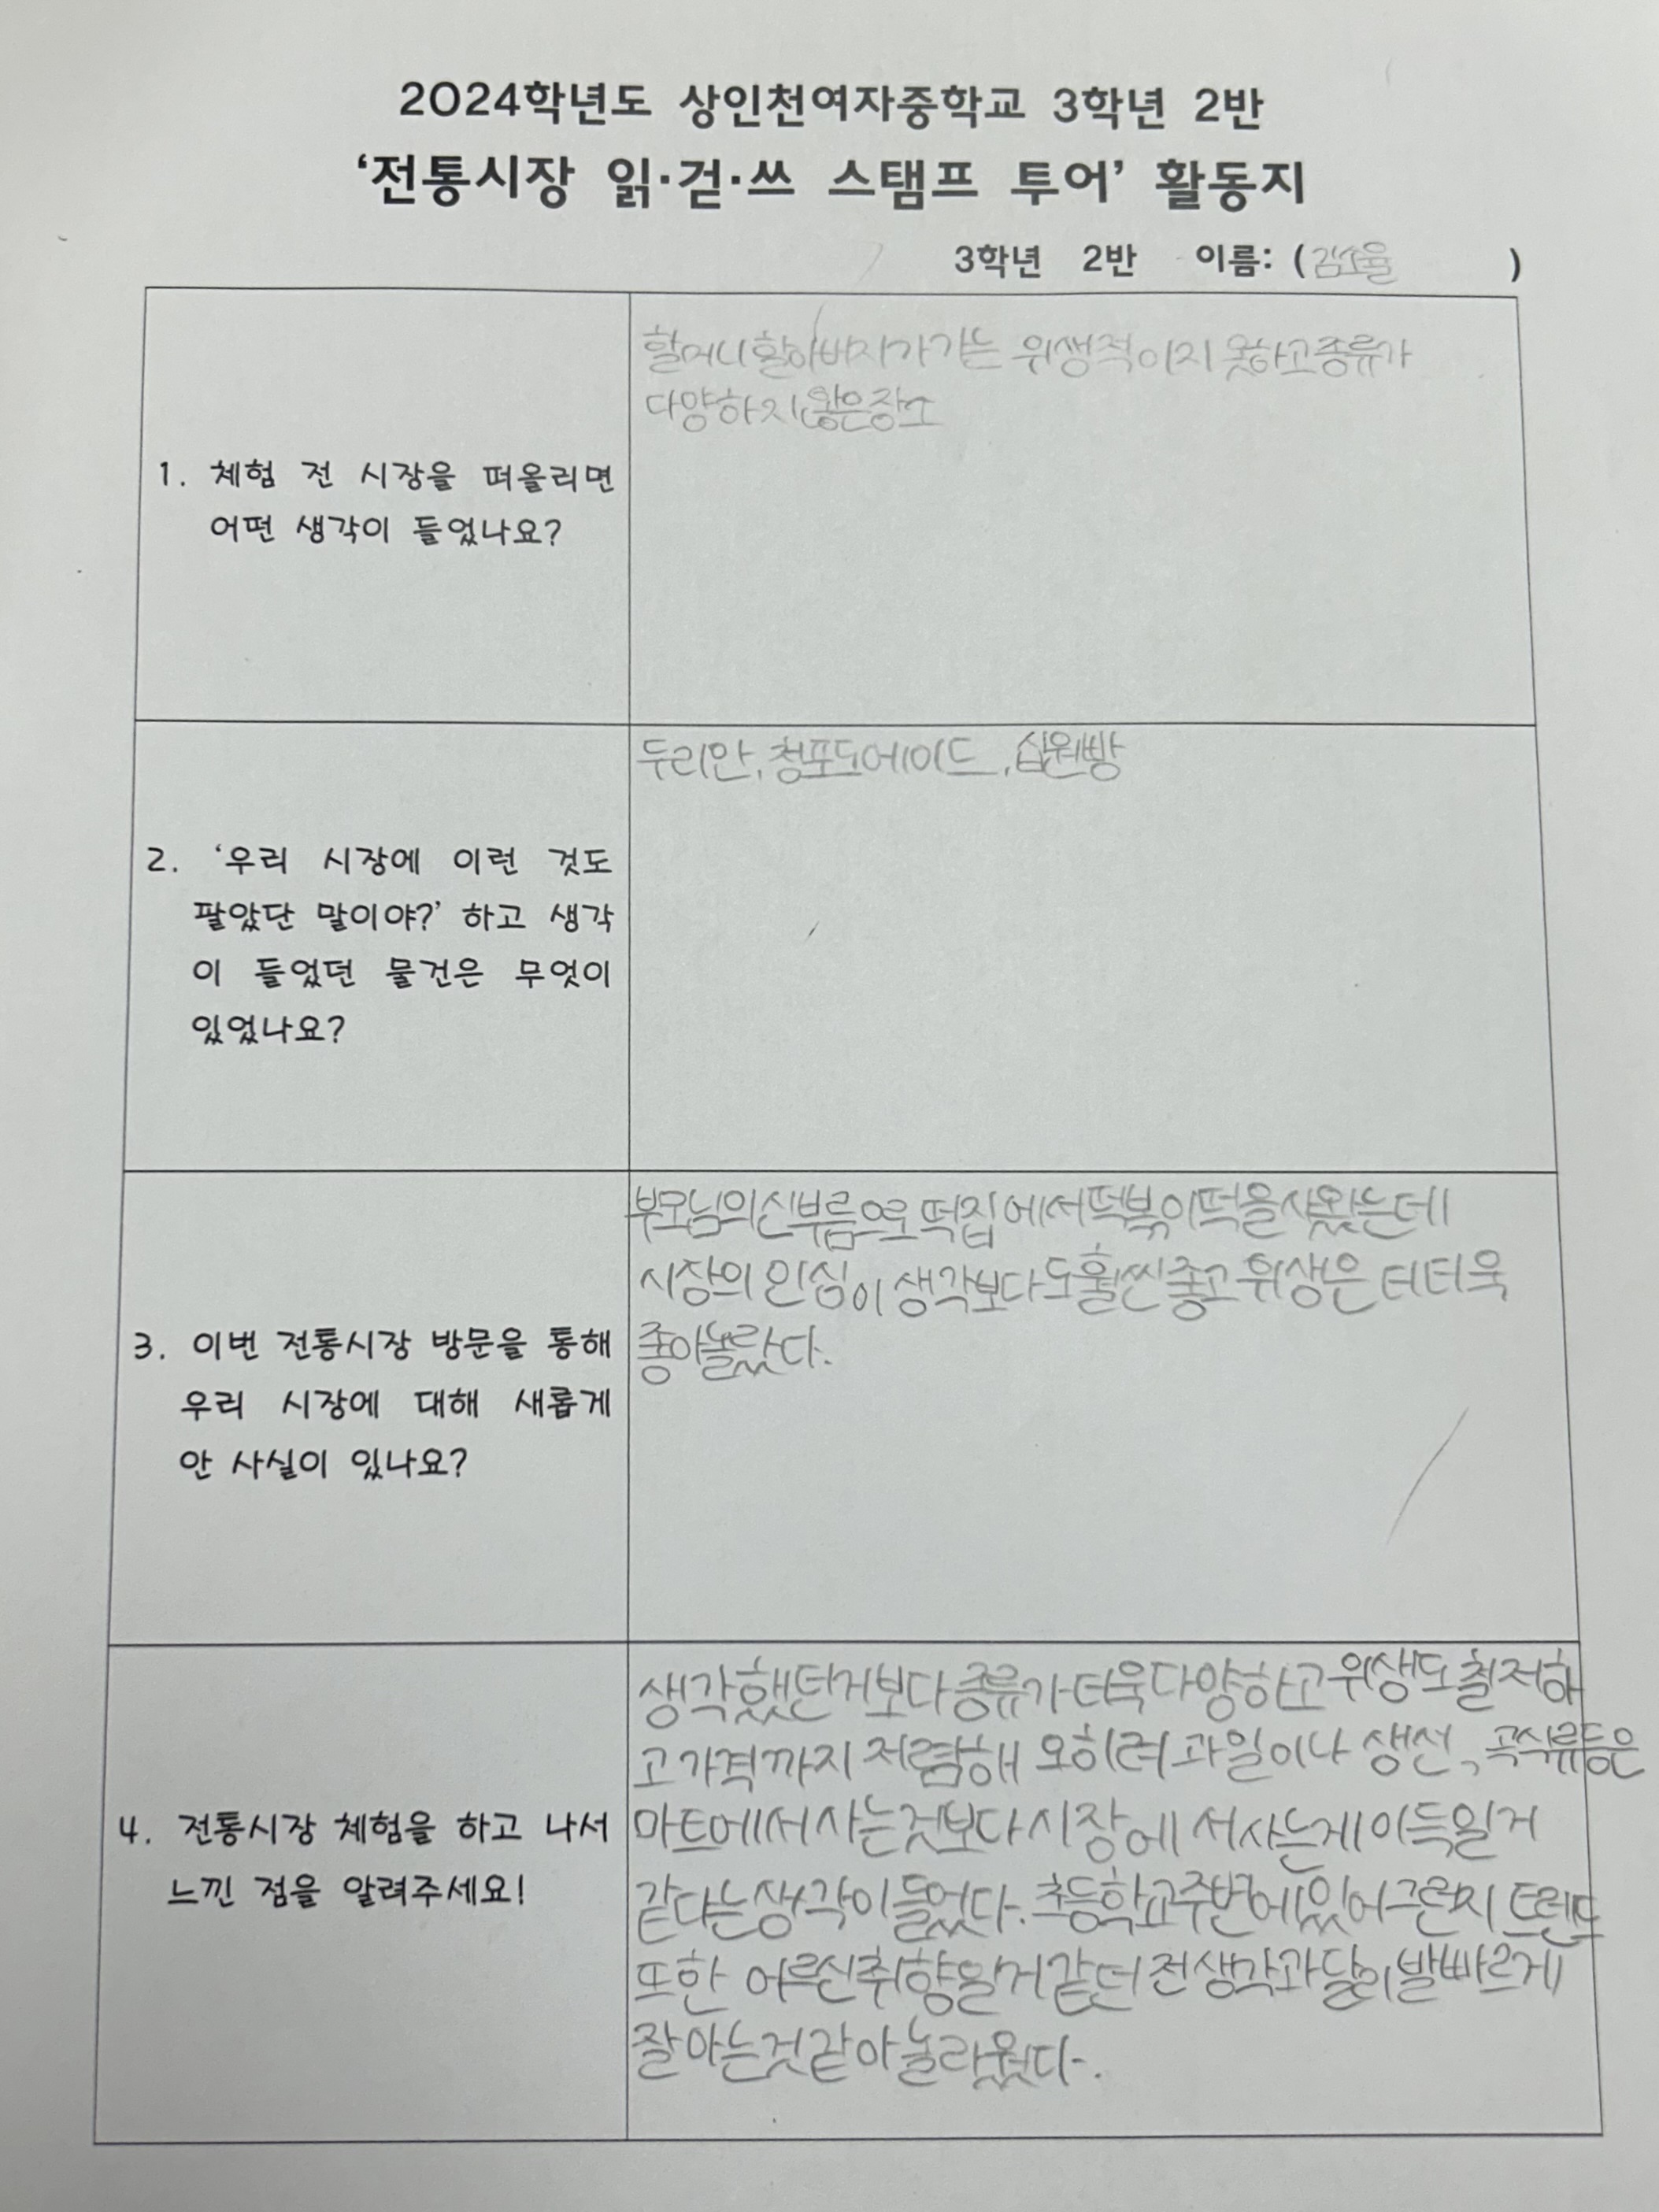 2024학년도 상인천여자중학교 3학년 2반
‘전통시장 읽·걷·쓰 스탬프 투어’ 활동지
3학년 2반 이름: (김소율 )
1. 체험 전 시장을 떠올리면
어떤 생각이 들었나요?
할머니 할아버지가 가는 위생적이지 못하고 종류가
다양하지 않은 장소
2. ‘우리 시장에 이런 것도
팔았단 말이야?’ 하고 생각
이 들었던 물건은 무엇이
있었나요?
두리안, 청포도에이드, 십원빵
3. 이번 전통시장 방문을 통해
우리 시장에 대해 새롭게
안 사실이 있나요?
부모님의 심부름으로 떡집에서 떡볶이떡을 사왔는데
시장의 인심이 생각보다도 훨씬 좋고 위생은 더더욱
좋아 놀랐다.
4. 전통시장 체험을 하고 나서
느낀 점을 알려주세요!
생각했던거보다 종류가 더욱 다양하고 위생도 철저하
고 가격까지 저렴해 오히려 과일이나 생선, 곡식류등은
마트에서 사는것보다 시장에서 사는게 이득일거
같다는 생각이 들었다. 초등학교 주변에 있어 그런지 트렌드
또한 어르신 취향일거 같던 전 생각과 달리 발빠르게
잘 아는것 같아 놀라웠다.